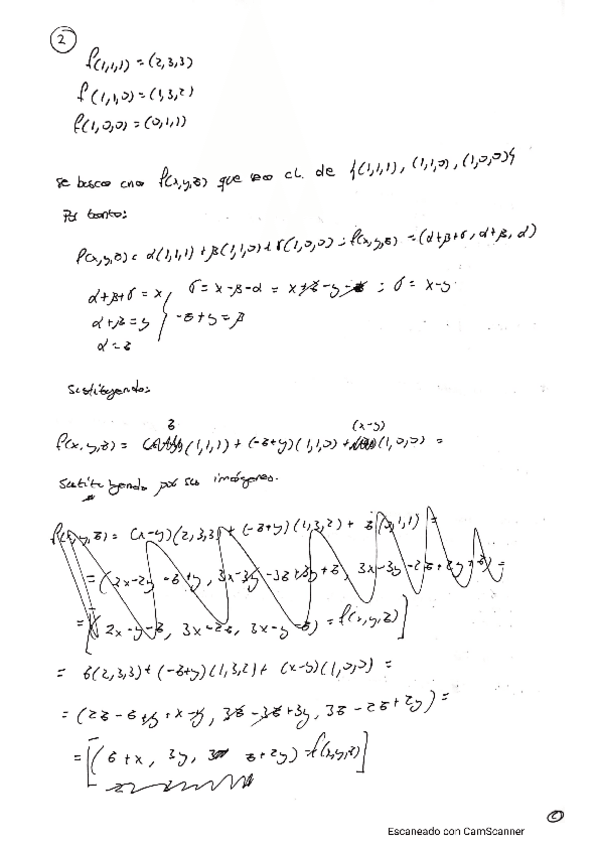 2
f(1,1,1) = (2,3,3)
f(1,1,0) = (1,3,2)
f(1,0,0) = (0,1,1)
Se busca una f(x,y,z) que sea cl. de {(1,1,1), (1,1,0), (1,0,0)}
Por tanto:
f(x,y,z) = α(1,1,1) + β(1,1,0) + σ(1,0,0) ; f(x,y,z) = (α+β+σ, α+β, α)
α+β+σ = x, σ = x-β-α = x+z-y-z ; σ = x-y
α+β = y -z+y = β
α = z
Sustituyendo:
z (x-y)
f(x,y,z) = (1,1,1) + (-z+y)(1,1,0) + (1,0,0) =
Sustituyendo por sus imágenes.
f(x,y,z) = (x-y)(2,3,3) + (-z+y)(1,3,2) + z(0,1,1) =
= (2x-2y-z+y, 3x-3y-3z+3y+z, 3x-3y-2z+2y+z) =
= [(2x-y-z, 3x-2z, 3x-y-z) = f(x,y,z)]
= z(2,3,3) + (-z+y)(1,3,2) + (x-y)(1,0,0) =
= (2z-z+y+x-y, 3z-3z+3y, 3z-2z+2y) =
= [(z+x, 3y, z+2y) = f(x,y,z)]
Escaneado con CamScanner